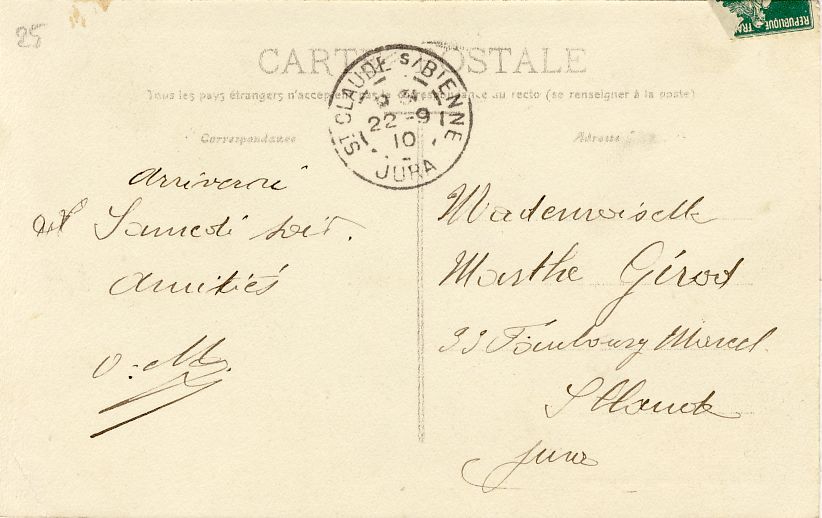 25
CARTE POSTALE
RÉPUBLIQUE FRA
Tous les pays étrangers n'acceptent pas la correspondance au recto (se renseigner à la poste)
Correspondance
Adresse
ST CLAUDE S/BIENNE
22-9
10
JURA
arriverai
Samedi soir.
Amitiés
Mademoiselle
Marthe Gérod
33 Faubourg Marcel
St Claude
Jura